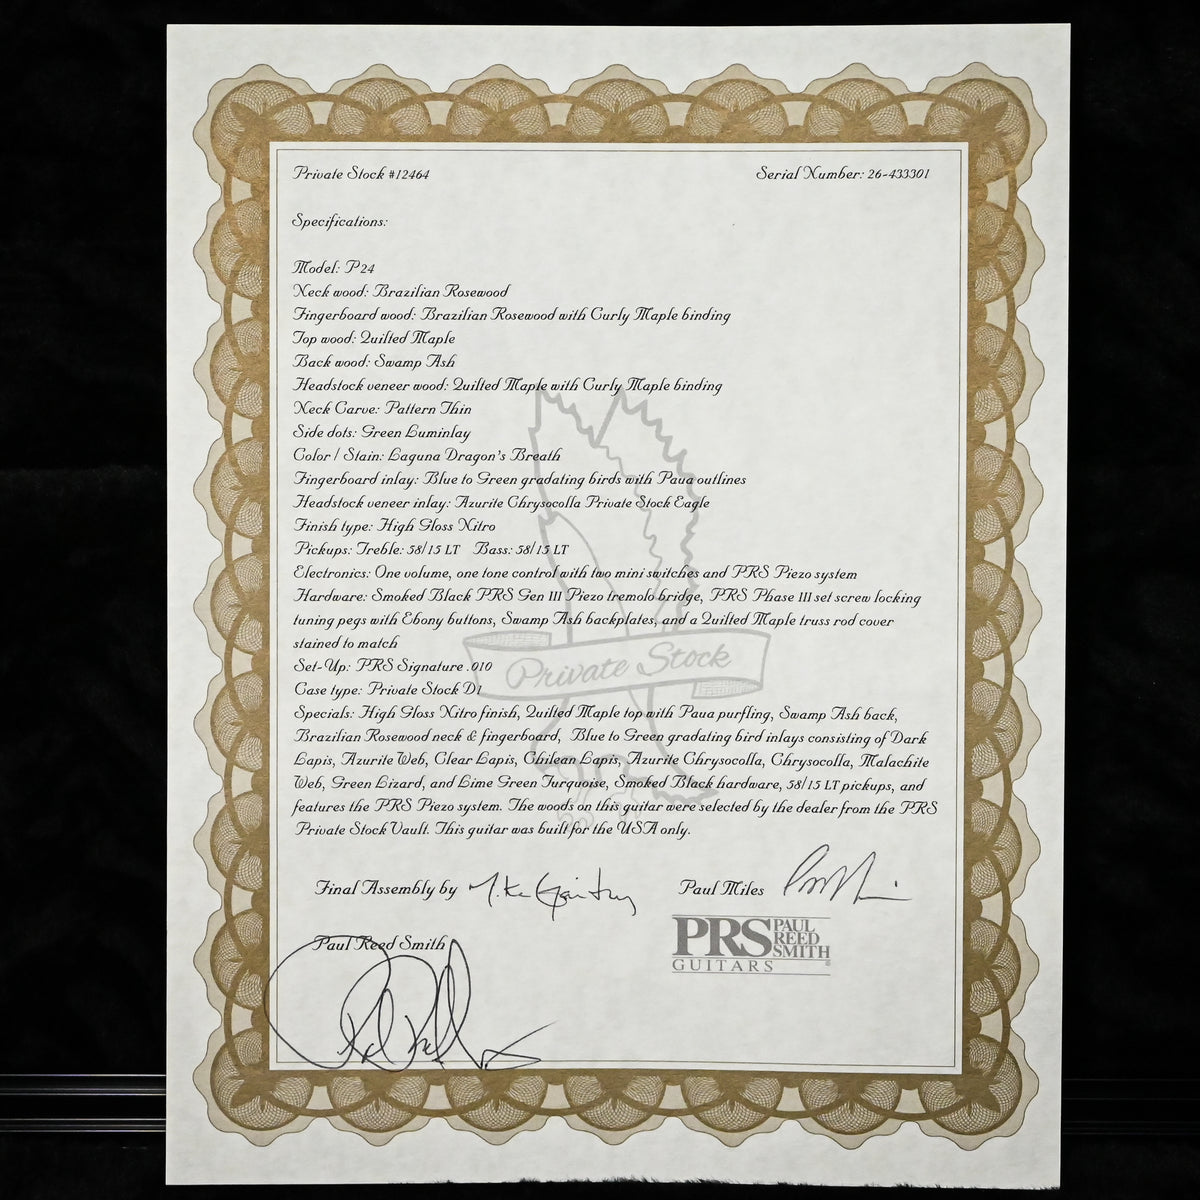 Private Stock #12464
Serial Number: 26-433301
Specifications:
Model: P24
Neck wood: Brazilian Rosewood
Fingerboard wood: Brazilian Rosewood with Curly Maple binding
Top wood: Quilted Maple
Back wood: Swamp Ash
Headstock veneer wood: Quilted Maple with Curly Maple binding
Neck Carve: Pattern Thin
Side dots: Green Luminlay
Color / Stain: Laguna Dragon's Breath
Fingerboard inlay: Blue to Green gradating birds with Paua outlines
Headstock veneer inlay: Azurite Chrysocolla Private Stock Eagle
Finish type: High Gloss Nitro
Pickups: Treble: 58/15 LT Bass: 58/15 LT
Electronics: One volume, one tone control with two mini switches and PRS Piezo system
Hardware: Smoked Black PRS Gen III Piezo tremolo bridge, PRS Phase III set screw locking
tuning pegs with Ebony buttons, Swamp Ash backplates, and a Quilted Maple truss rod cover
stained to match
Private Stock
Set-Up: PRS Signature .010
Case type: Private Stock D1
Specials: High Gloss Nitro finish, Quilted Maple top with Paua purfling, Swamp Ash back,
Brazilian Rosewood neck & fingerboard, Blue to Green gradating bird inlays consisting of Dark
Lapis, Azurite Web, Clear Lapis, Chilean Lapis, Azurite Chrysocolla, Chrysocolla, Malachite
Web, Green Lizard, and Lime Green Turquoise, Smoked Black hardware, 58/15 LT pickups, and
features the PRS Piezo system. The woods on this guitar were selected by the dealer from the PRS
Private Stock Vault. This guitar was built for the USA only.
Final Assembly by
Paul Miles
Paul Reed Smith
PRS PAUL
REED
SMITH
GUITARS